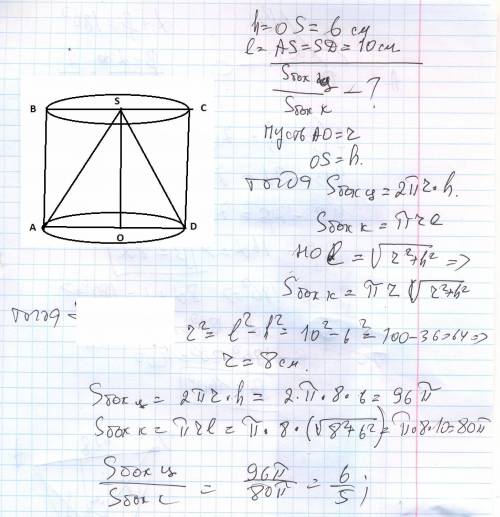 h = OS = 6 см
l = AS = SD = 10 см
Sбок ц / Sбок к — ?
пусть AO = r
OS = h.
тогда Sбок ц = 2πr·h.
Sбок к = πrl
но l = √r²+h² =>
Sбок к = πr √r²+h²
B S C
A O D
тогда :
r² = l² - h² = 10² - 6² = 100 - 36 = 64 =>
r = 8 см.
Sбок ц = 2πr·h = 2·π·8·6 = 96π
Sбок к = πrl = π·8·(√8²+6²) = π·8·10 = 80π
Sбок ц / Sбок к = 96π / 80π = 6 / 5 ;